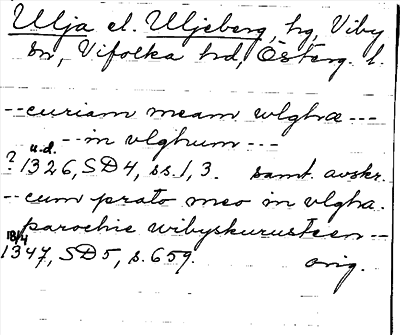 Ulja el. Uljeberg, hg, Viby
sn, Vifolka hd, Österg. l.
--curiam meam wlghæ---
--in vlghum---
u.d.
? 1326, SD4, ss.1, 3. samt. avskr.
--cum prato meo in vlgha.
parochie wibyskurusteen--
18/4
1347, SD5, s.659. orig.